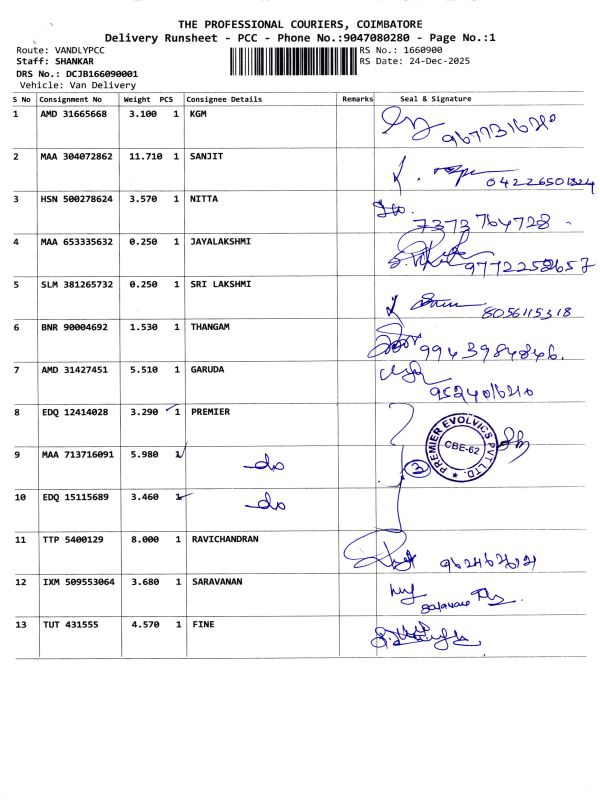 THE PROFESSIONAL COURIERS, COIMBATORE
Delivery Runsheet - PCC - Phone No.:9047080280 - Page No.:1
Route: VANDLYPCC RS No.: 1660900
Staff: SHANKAR RS Date: 24-Dec-2025
DRS No.: DCJB166090001
Vehicle: Van Delivery
S No Consignment No Weight PCS Consignee Details Remarks Seal & Signature
1 AMD 31665668 3.100 1 KGM
2 MAA 304072862 11.710 1 SANJIT
3 HSN 500278624 3.570 1 NITTA
7373 764728
4 MAA 653335632 0.250 1 JAYALAKSHMI
9772258657
5 SLM 381265732 0.250 1 SRI LAKSHMI
8056115318
6 BNR 90004692 1.530 1 THANGAM
9943984846.
7 AMD 31427451 5.510 1 GARUDA
8 EDQ 12414028 3.290 1 PREMIER
PREMIER EVOLVICS PVT LTD.
CBE-62
9 MAA 713716091 5.980 1 do
3
10 EDQ 15115689 3.460 1 do
11 TTP 5400129 8.000 1 RAVICHANDRAN
12 IXM 509553064 3.680 1 SARAVANAN
13 TUT 431555 4.570 1 FINE